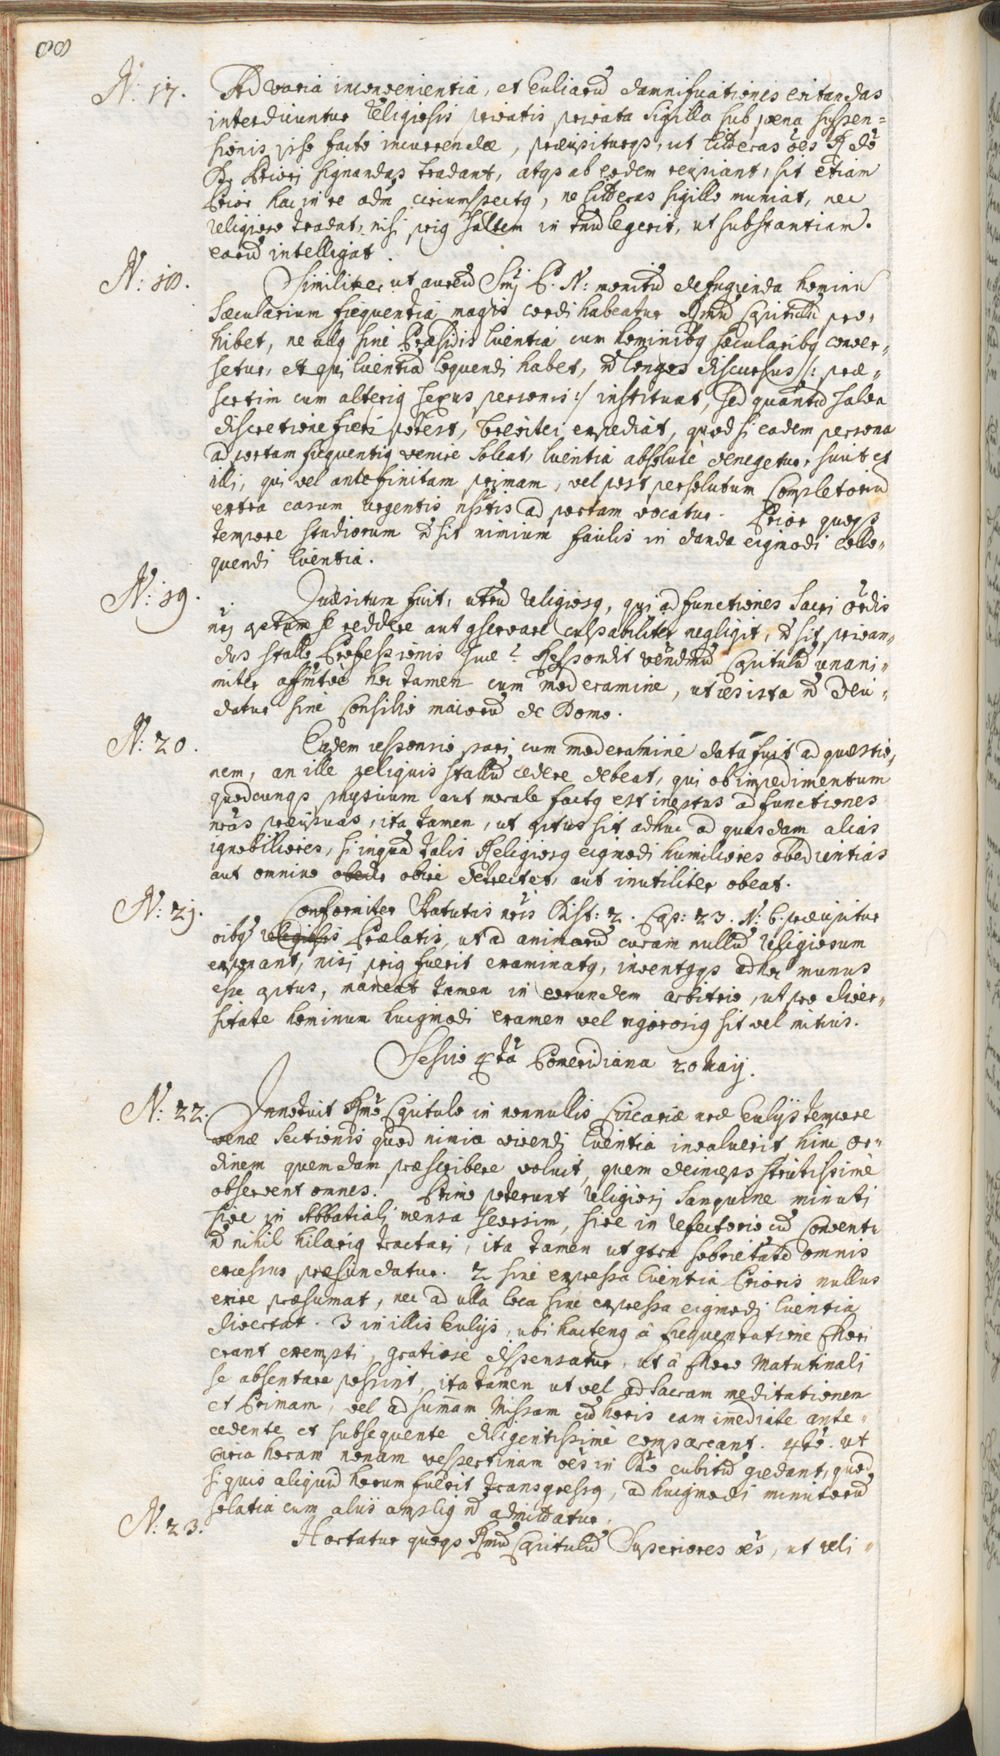 88
N: 17. Ad varia inconvenientia, et Eccliarũ damnificationes evitandas
interdicuntur Religiosis privatis privata sigilla sub pœna suspen=
sionis ipso facto incurrendæ, præcipiturqs, ut litteras oẽs R. dõ
Dr Priori signandas tradant, atqs ab eodem recipiant, sit etiam
Prior hac in re adm̃ circumspectq, ne litteras sigillo muniat, nec
religioso tradat, nisi priq saltem in tm̃ legerit, ut substantiam
earũ intelligat.
N: 18. Similiter ut aureũ Smj P. N: monitũ de fugienda hominũ
sæcularium frequentia magis cordi habeatur Rmũ Capitulũ pro=
hibet, ne ullq sine Præsidis licentia cum hominibq sæcularibq conver=
setur, et qui licentiã loquendi habet, nõ longos discursus /: præ=
sertim cum alteriq sexus personis :/ instituat, sed quantũ salva
discretione fieri potest, breviter expediat, quod si eadem persona
ad portam frequentiq venire soleat, licentia absolutè denegetur, sicut et
illi, qui vel ante finitam primam, vel post persolutum Completoriũ
extra casum urgentis nsstis ad portam vocatur. Prior quoqs
tempore studiorum nõ sit nimium facilis in danda eiqmodi collo=
quendi licentia.
N: 19. Quæsitum fuit, utrũ religiosq, qui ad functiones sacri ordis
nri aptum se reddere aut qservare culpabiliter negligit, nõ sit privan=
dus stallo Professionis suæ? Respondit vẽndmũ Capitulũ unani=
miter affirmtvè hoc tamen cum moderamine, ut res ista nõ deci=
datur sine Consilio maiorũ de Domo.
N: 20. Eadem responsio pari cum moderamine data fuit ad quæstio=
nem, an ille reliquis stallũ cedere debeat, qui ob impedimentum
quodcunqs physicum aut morale factq est ineptus ad functiones
nrãs præcipuas, ita tamen, ut aptus sit adhuc ad quasdam alias
ignobiliores, si inquã talis Religiosq eiqmodi humiliores obedientias
aut omnino obedir obire detrectet, aut inutiliter obeat.
N: 21. Conformiter Statutis nris Dist: 2. Cap: 23. N: 6. præcipitur
oibq religiosis Prælatis, ut ad animarũ curam nullũ religiosum
exponant, nisi priq fuerit examinatq, inventqqs ad hoc munus
esse aptus, maneat tamen in eorundem arbitrio, ut pro diver=
sitate hominum huiqmodi examen vel rigorosiq sit vel mitius.
Sessio 4tã Pomeridiana 20 Maij.
N: 22. Innotuit Rmõ Capitulo in nonnullis Circariæ nræ Ecclijs tempore
venæ sectionis quod nimia vivendi licentia invaluerit hinc or=
dinem quemdam præscribere voluit, quem deinceps strictissimè
observent omnes. Primo poterunt religiosi sanguine minuti
sive in Abbatiali mensa seorsim, sive in refectorio cũ Conventu
nõ nihil hilariq tractari, ita tamen ut qtra sobrietatẽ omnis
excessus præscindatur. 2 sine expressa licentia Prioris nullus
exire præsumat, nec ad ulla loca sine expressa eiqmodi licentia
divertat. 3 in illis Ecclijs, ubi hactenq à frequentatione Chori
erant exempti, gratiosè dispensatur, ut à Choro Matutinali
se absentare possint, ita tamen ut vel ad sacram meditationem
et Primam, vel ad sum̃am Missam cũ horis eam im̃ediatè ante=
cedente et subsequente diligentissimè compareant. 4tõ. ut
circa horam nonam vespertinam oẽs in Dnõ cubitũ qcedant, quod
si quis aliquid horum fuerit transgressq, ad huiqmodi minutorũ
solatia cum aliis ampliq nõ admittatur.
N: 23. Hortatur quoqs Rmũ Capitulũ Superiores oẽs, ut reli=